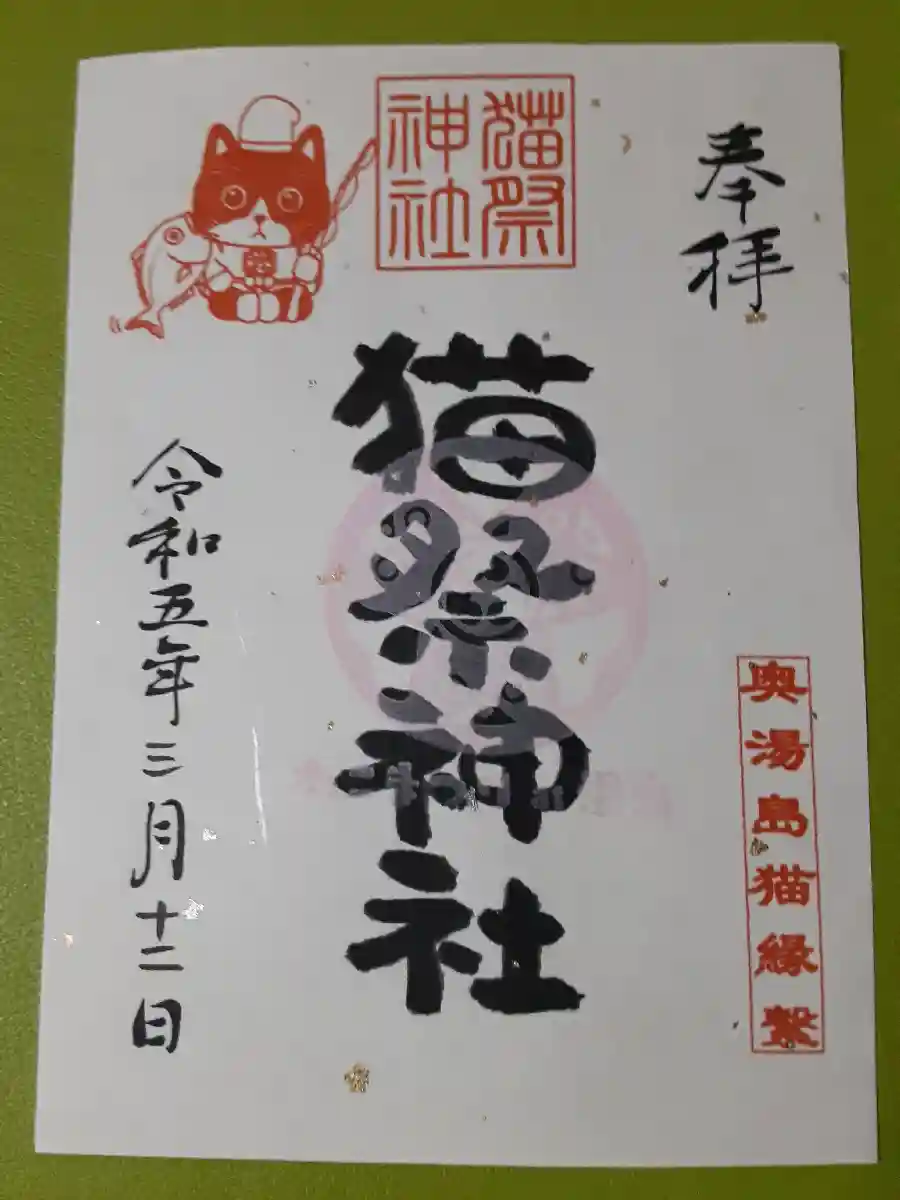 奉拝
奥湯島猫縁繋
猫祭
神社
猫祭神社
令和五年三月十二日